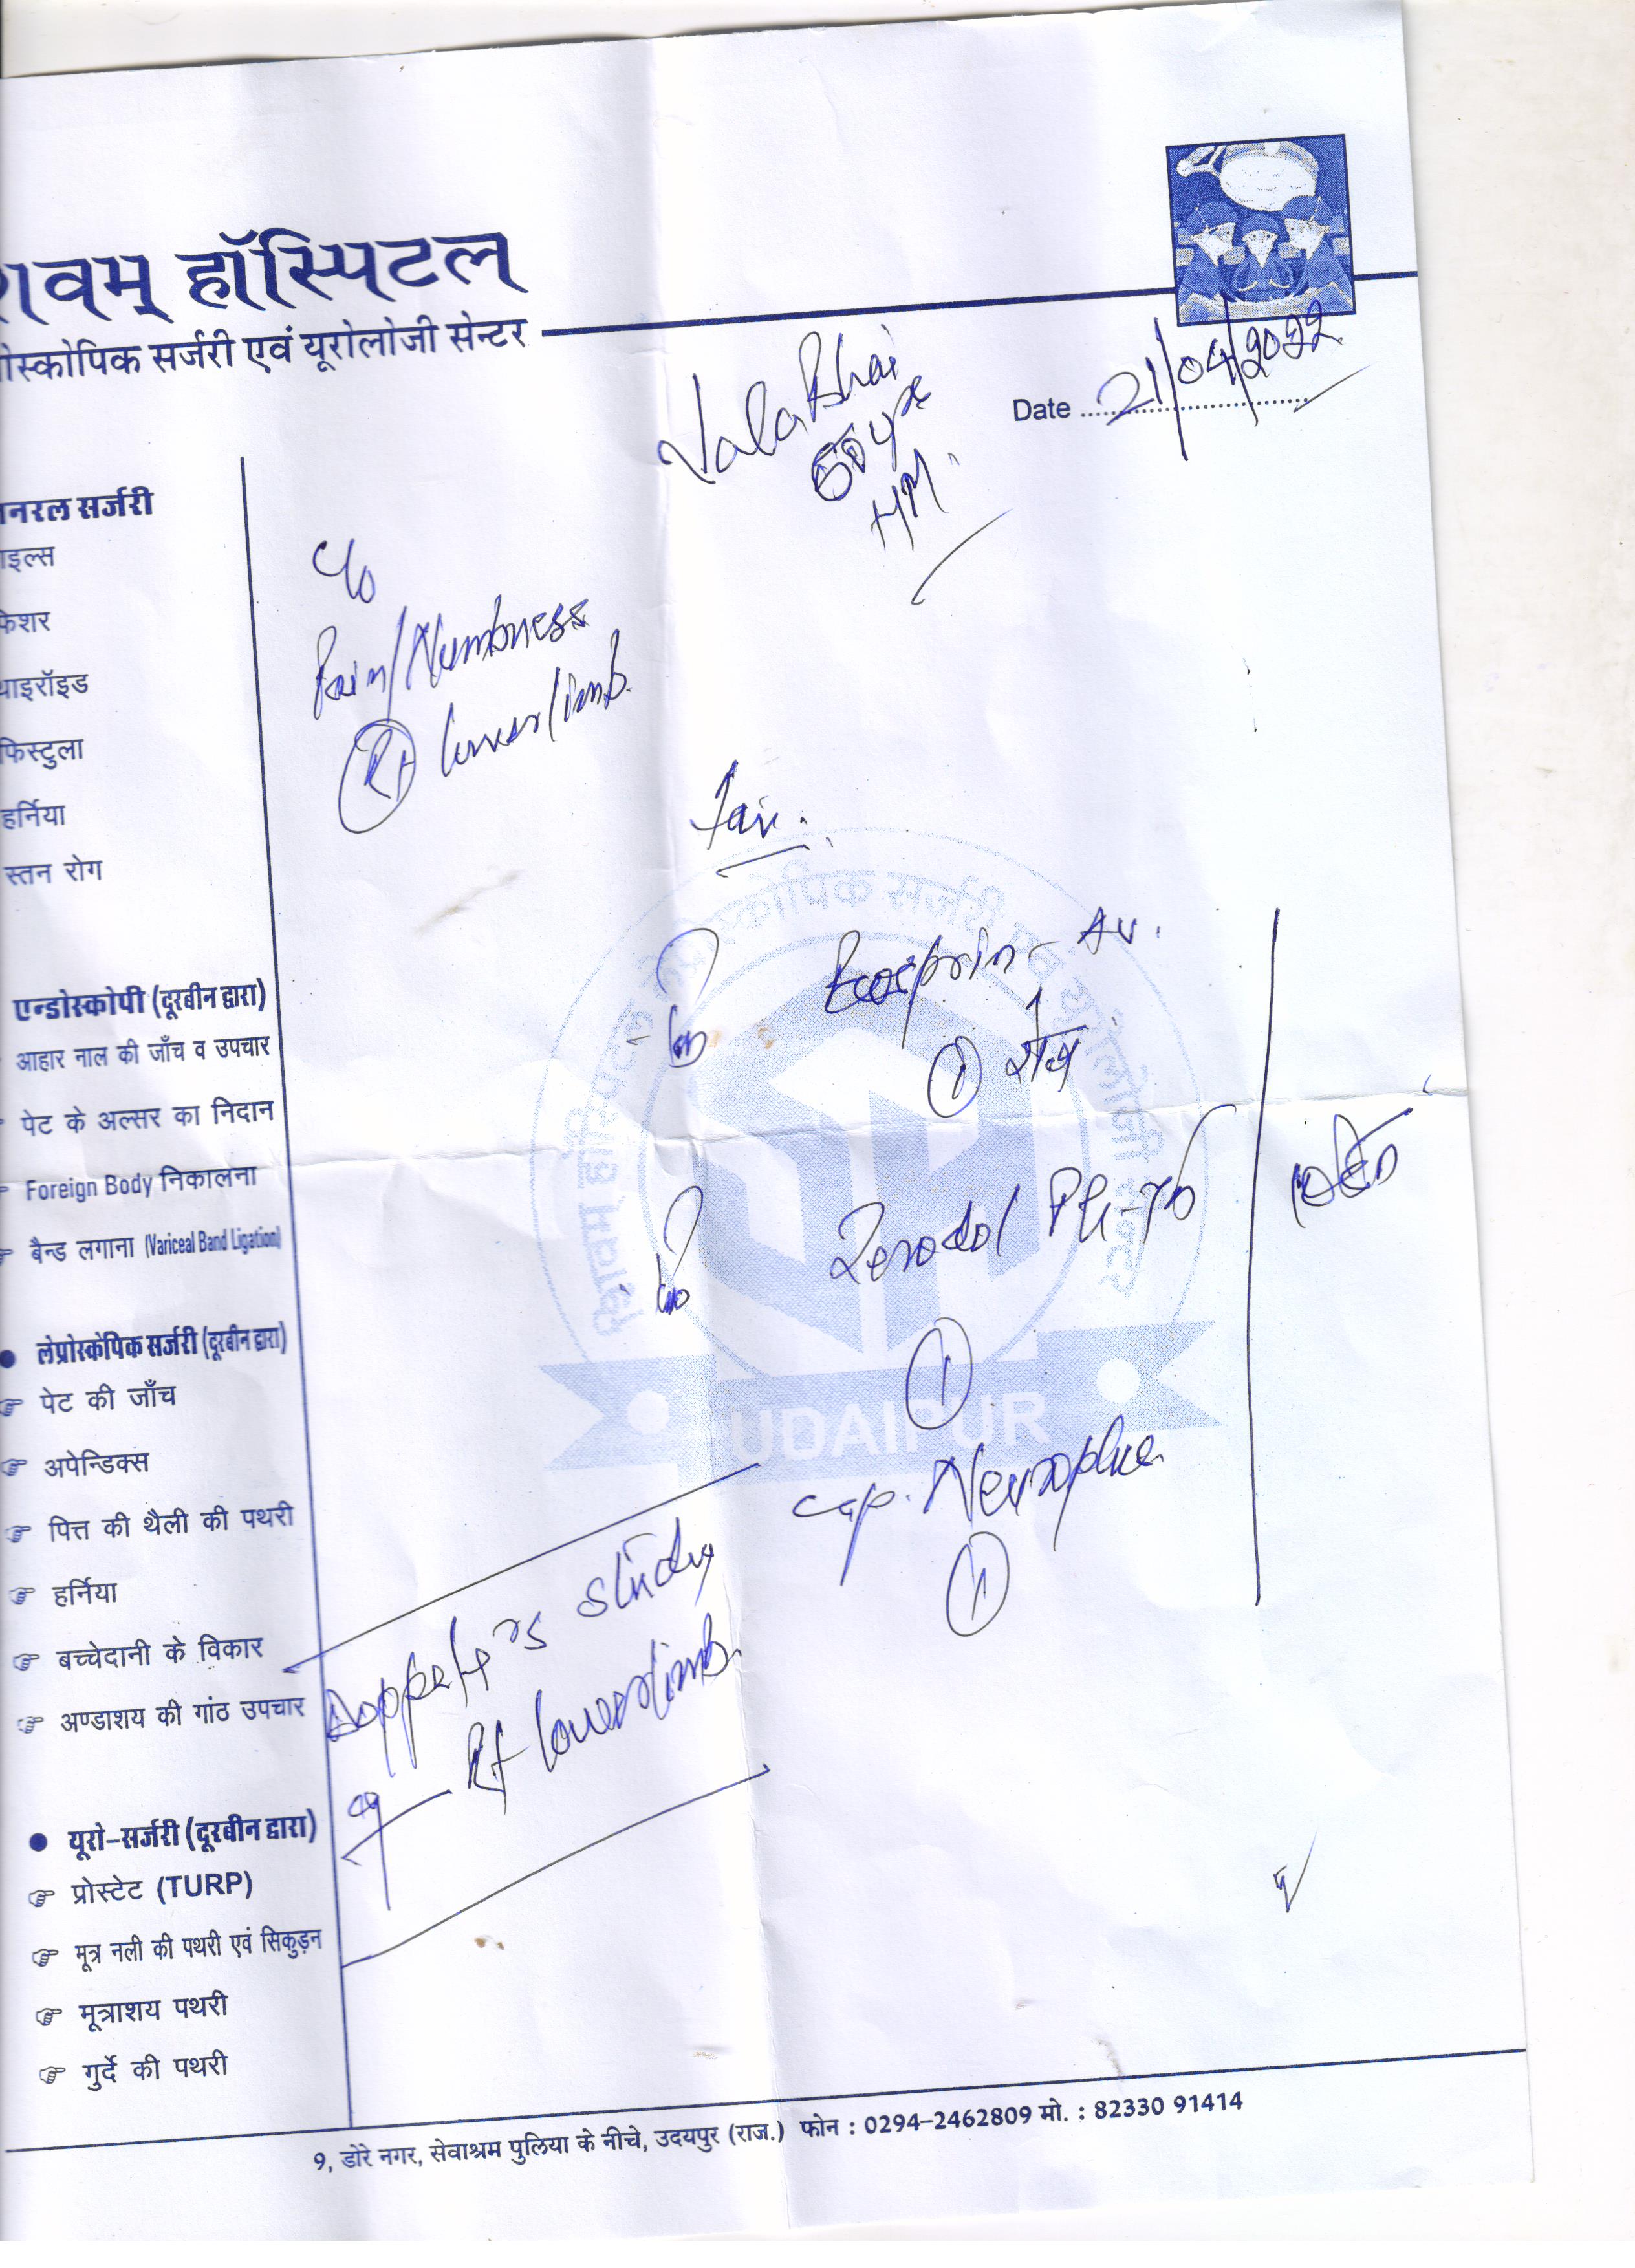 शिवम् हॉस्पिटल
स्कोपिक सर्जरी एवं यूरोलोजी सेन्टर
Date 21/04/2022
50 yrs
नरल सर्जरी
इल्स
फिशर
थाइरॉइड
फिस्टुला
हर्निया
स्तन रोग
C/o
Pain/Numbness
Rt lower limb.
Adv.
Ecosprin - AV.
1 रोज
Zerodol
1
cap.
1
Doppler's study
Rt lower limb
एन्डोस्कोपी (दूरबीन द्वारा)
आहार नाल की जाँच व उपचार
पेट के अल्सर का निदान
Foreign Body निकालना
बैन्ड लगाना (Variceal Band Ligation)
लेप्रोस्कोपिक सर्जरी (दूरबीन द्वारा)
पेट की जाँच
अपेन्डिक्स
पित्त की थैली की पथरी
हर्निया
बच्चेदानी के विकार
अण्डाशय की गांठ उपचार
यूरो-सर्जरी (दूरबीन द्वारा)
प्रोस्टेट (TURP)
मूत्र नली की पथरी एवं सिकुड़न
मूत्राशय पथरी
गुर्दे की पथरी
UDAIPUR
9, डोरे नगर, सेवाश्रम पुलिया के नीचे, उदयपुर (राज.) फोन : 0294-2462809 मो. : 82330 91414